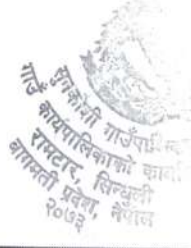 सुनकोशी गाउँपालि
गाउँ कार्यपालिकाको कार्या
रामटार, सिन्धुली
बागमती प्रदेश, नेपाल
२०७३